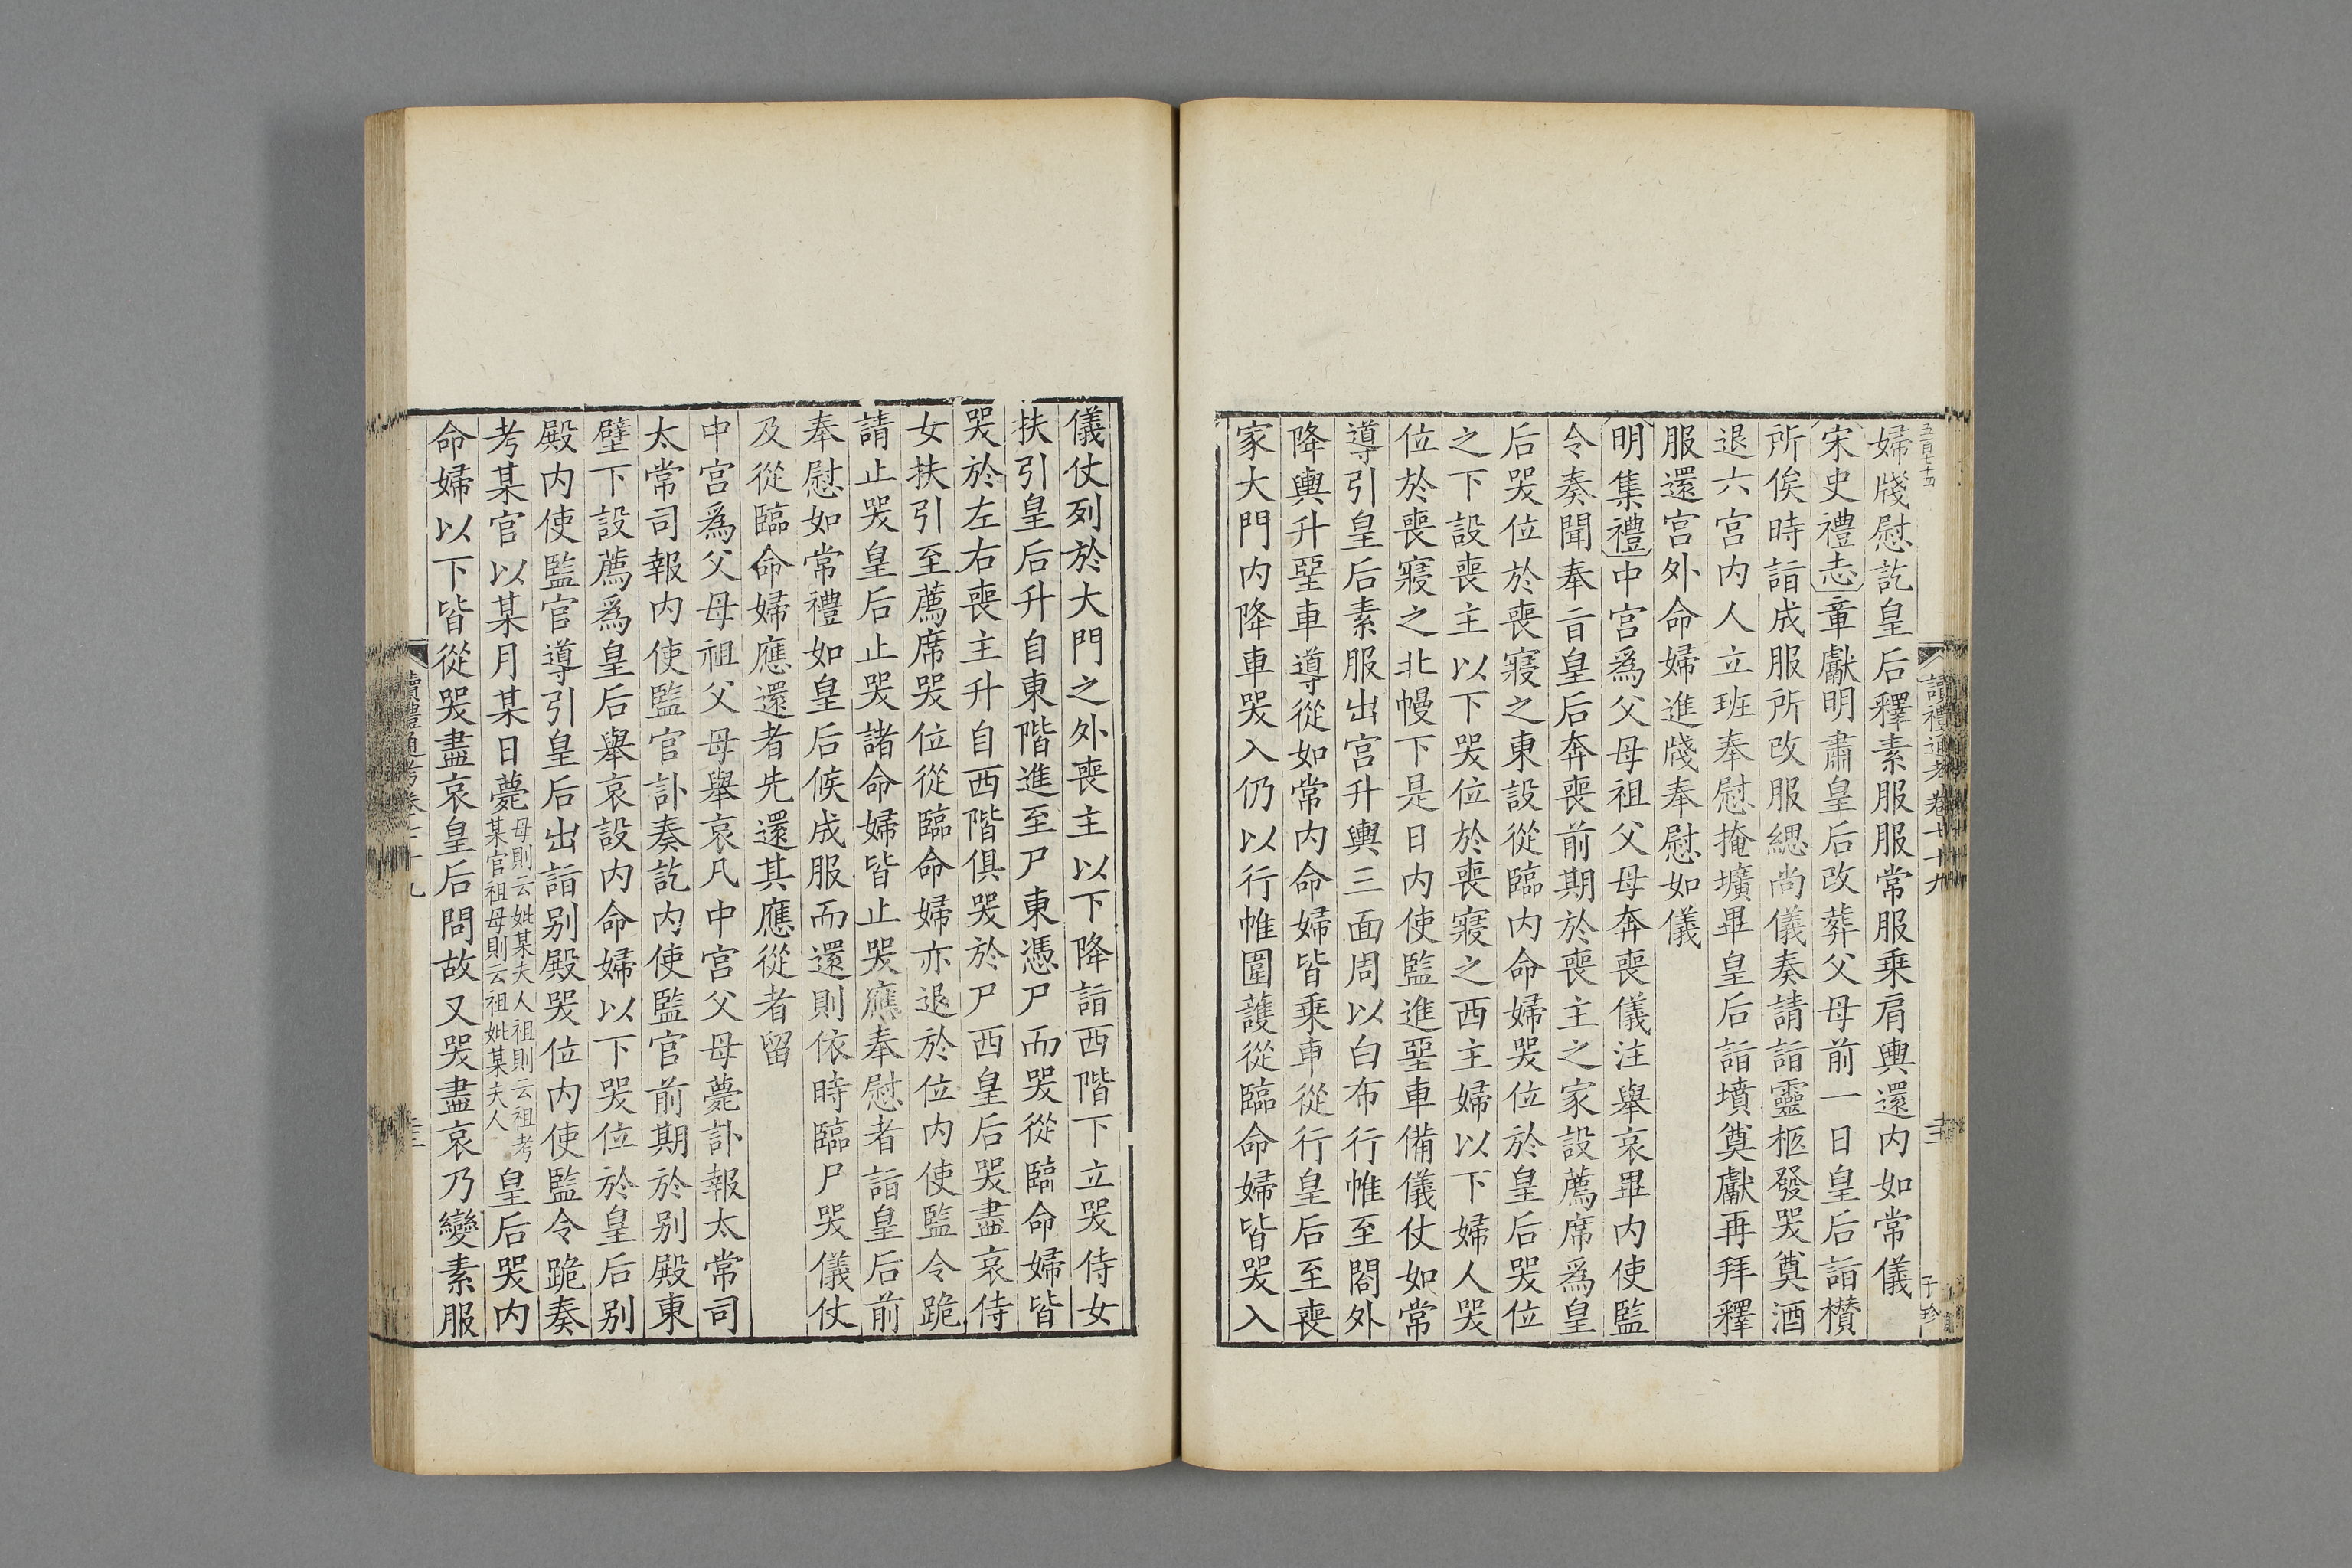 五百七十五
婦牋慰訖皇后釋素服服常服乗肩輿還内如常儀
宋史禮志章獻明肅皇后改葬父母前一日皇后詣欑
所俟時詣成服所改服緦尚儀奏請詣靈柩發哭奠酒
退六宫内人立班奉慰掩壙畢皇后詣墳奠獻再拜釋
服還宫外命婦進牋奉慰如儀
明集禮中宫爲父母祖父母奔喪儀注舉哀畢内使監
令奏聞奉㫖皇后奔喪前期於喪主之家設薦席爲皇
后哭位於喪寢之東設從臨内命婦哭位於皇后哭位
之下設喪主以下哭位於喪寢之西主婦以下婦人哭
位於喪寢之北幔下是日内使監進堊車備儀仗如常
導引皇后素服出宫升輿三面周以白布行帷至閤外
降輿升堊車導從如常内命婦皆乗車從行皇后至喪
家大門内降車哭入仍以行帷圍護從臨命婦皆哭入
讀禮通考卷七十九
子珍
儀仗列於大門之外喪主以下降詣西階下立哭侍女
扶引皇后升自東階進至尸東憑尸而哭從臨命婦皆
哭於左右喪主升自西階俱哭於尸西皇后哭盡哀侍
女扶引至薦席哭位從臨命婦亦退於位内使監令跪
請止哭皇后止哭諸命婦皆止哭應奉慰者詣皇后前
奉慰如常禮如皇后候成服而還則依時臨尸哭儀仗
及從臨命婦應還者先還其應從者留
中宫爲父母祖父母舉哀凡中宫父母薨訃報太常司
太常司報内使監官訃奏訖内使監官前期於别殿東
壁下設薦爲皇后舉哀設内命婦以下哭位於皇后别
殿内使監官導引皇后出詣别殿哭位内使監令跪奏
考某官以某月某日薨母則云妣某夫人祖則云祖考某官祖母則云祖妣某夫人皇后哭内
命婦以下皆從哭盡哀皇后問故又哭盡哀乃變素服
讀禮通考卷七十九